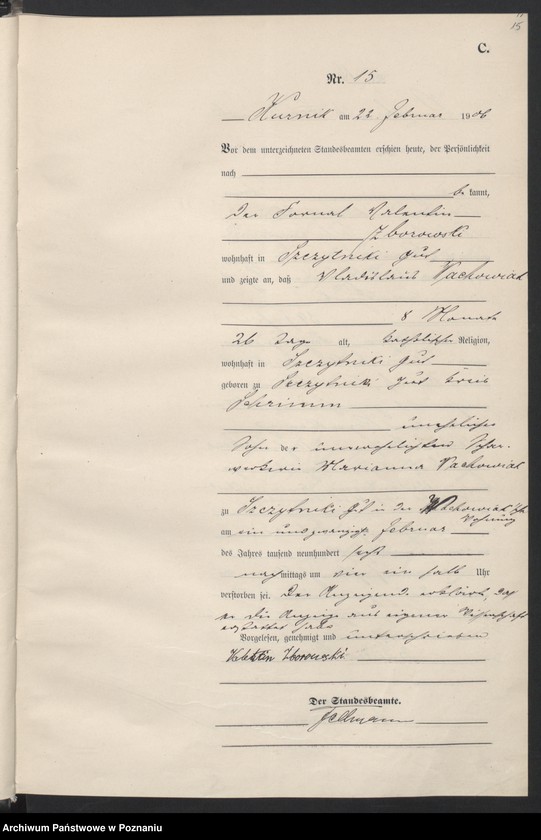 15
C.
Nr. 15
Kurnik am 22 Februar 1906
Vor dem unterzeichneten Standesbeamten erschien heute, der Persönlichkeit
nach
be kannt,
der Fornal Valentin
Zborowski
wohnhaft in Szczytniki Gut
und zeigte an, daß Vladislaus Wachowiak
8 Monate
26 Tage alt, katholischer Religion,
wohnhaft in Szczytniki Gut
geboren zu Szczytniki Gut Kreis
Schrimm
unehelicher
Sohn der unverehelichten Schar-
werkerin Marianna Wachowiak
zu Szczytniki Gut in der Wachowiak'schen
Wohnung
am ein und zwanzigsten Februar
des Jahres tausend neunhundert sechs
nachmittags um vier ein halb Uhr
verstorben sei. Der Anzeigende erklärt, daß
er die Anzeige aus eigener Wissenschaft
erstattet habe
Vorgelesen, genehmigt und unterschrieben
Zborowski
Der Standesbeamte.
Archiwum Państwowe w Poznaniu